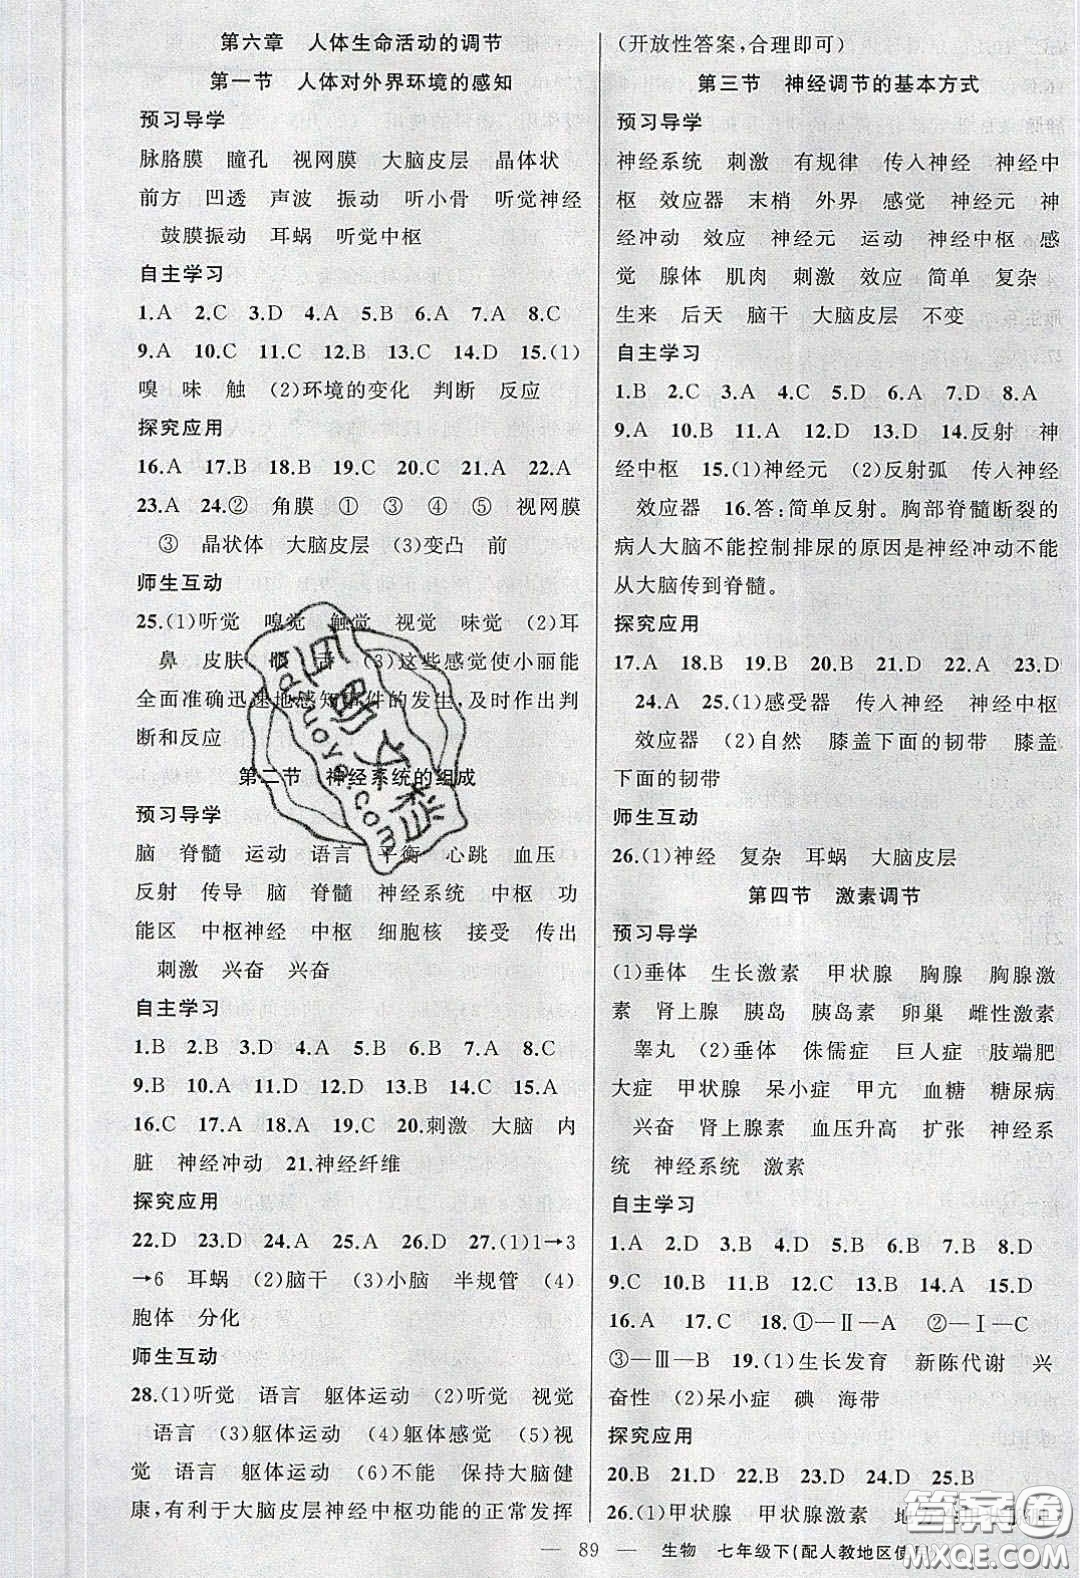 第六章 人体生命活动的调节
第一节 人体对外界环境的感知
预习导学
脉胳膜 瞳孔 视网膜 大脑皮层 晶体状
前方 凹透 声波 振动 听小骨 听觉神经
鼓膜振动 耳蜗 听觉中枢
自主学习
1.A 2.C 3.D 4.A 5.B 6.A 7.A 8.C
9.A 10.C 11.C 12.B 13.C 14.D 15.(1)
嗅 味 触 (2)环境的变化 判断 反应
探究应用
16.A 17.B 18.B 19.C 20.C 21.A 22.A
23.A 24.② 角膜 ① ③ ④ ⑤ 视网膜
③ 晶状体 大脑皮层 (3)变凸 前
师生互动
25.(1)听觉 嗅觉 触觉 视觉 味觉 (2)耳
鼻 皮肤 (3)这些感觉使小丽能
全面准确迅速地感知事件的发生,及时作出判
断和反应
第二节 神经系统的组成
预习导学
脑 脊髓 运动 语言 平衡 心跳 血压
反射 传导 脑 脊髓 神经系统 中枢 功
能区 中枢神经 中枢 细胞核 接受 传出
刺激 兴奋 兴奋
自主学习
1.B 2.B 3.D 4.A 5.C 6.A 7.A 8.C
9.B 10.A 11.D 12.C 13.C 14.C 15.A
16.C 17.A 18.C 19.C 20.刺激 大脑 内
脏 神经冲动 21.神经纤维
探究应用
22.D 23.D 24.A 25.A 26.D 27.(1)1→3
→6 耳蜗 (2)脑干 (3)小脑 半规管 (4)
胞体 分化
师生互动
28.(1)听觉 语言 躯体运动 (2)听觉 视觉
语言 (3)躯体运动 (4)躯体感觉 (5)视
觉 语言 躯体运动 (6)不能 保持大脑健
康,有利于大脑皮层神经中枢功能的正常发挥
(开放性答案,合理即可)
第三节 神经调节的基本方式
预习导学
神经系统 刺激 有规律 传入神经 神经中
枢 效应器 末梢 外界 感觉 神经元 神
经冲动 效应 神经元 运动 神经中枢 感
觉 腺体 肌肉 刺激 效应 简单 复杂
生来 后天 脑干 大脑皮层 不变
自主学习
1.B 2.C 3.A 4.C 5.D 6.A 7.D 8.A
9.A 10.B 11.A 12.D 13.D 14.反射 神
经中枢 15.(1)神经元 (2)反射弧 传入神经
效应器 16.答:简单反射。胸部脊髓断裂的
病人大脑不能控制排尿的原因是神经冲动不能
从大脑传到脊髓。
探究应用
17.A 18.B 19.B 20.B 21.D 22.A 23.D
24.A 25.(1)感受器 传入神经 神经中枢
效应器 (2)自然 膝盖下面的韧带 膝盖
下面的韧带
师生互动
26.(1)神经 复杂 耳蜗 大脑皮层
第四节 激素调节
预习导学
(1)垂体 生长激素 甲状腺 胸腺 胸腺激
素 肾上腺 胰岛 胰岛素 卵巢 雌性激素
睾丸 (2)垂体 侏儒症 巨人症 肢端肥
大症 甲状腺 呆小症 甲亢 血糖 糖尿病
兴奋 肾上腺素 血压升高 扩张 神经系
统 神经系统 激素
自主学习
1.A 2.D 3.B 4.C 5.A 6.D 7.B 8.D
9.C 10.B 11.B 12.B 13.B 14.A 15.D
16.A 17.C 18.①—Ⅱ—A ②—Ⅰ—C
③—Ⅲ—B 19.(1)生长发育 新陈代谢 兴
奋性 (2)呆小症 碘 海带
探究应用
20.B 21.A 22.D 23.D 24.D 25.B
26.(1)甲状腺 甲状腺激素
— 89 — 生物 七年级下(配人教地区使用)
答案圈
MXQE.COM